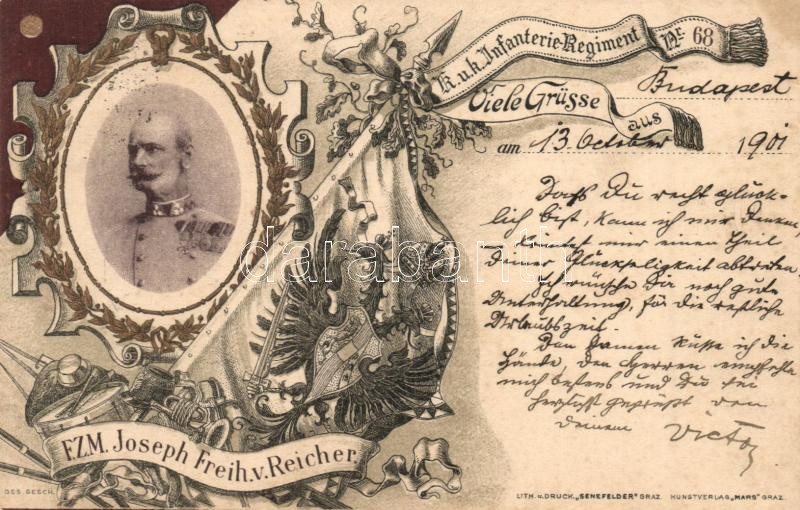 K.u.k. Infanterie-Regiment Nr. 68
Viele Grüsse aus Budapest
am 13 October 1901
Dass Du recht glück-
lich bist, kann ich mir denken,
könntest mir einen Theil
Deiner Glückseligkeit abtreten.
Ich wünsche Dir noch gute
Unterhaltung, für die restliche
Urlaubszeit.
Den Damen küsse ich die
Hände, den Herren empfehle
mich bestens und Du sei
herzlichst gegrüßt von
Deinem Victor
F.Z.M. Joseph Freih. v. Reicher
GES. GESCH.
LITH. u. DRUCK. „SENEFELDER" GRAZ. KUNSTVERLAG „MARS" GRAZ.
darabanth